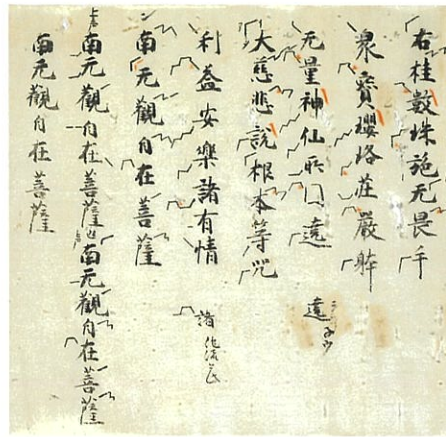 右桂數珠施无畏手
衆寳瓔珞莊嚴躰
无量神仙所囗遶 遶
大慈悲說根本等咒
利益安樂諸有情 諸
南无觀自在菩薩
南无觀自在菩薩 南无觀自在菩薩
南无觀自在菩薩